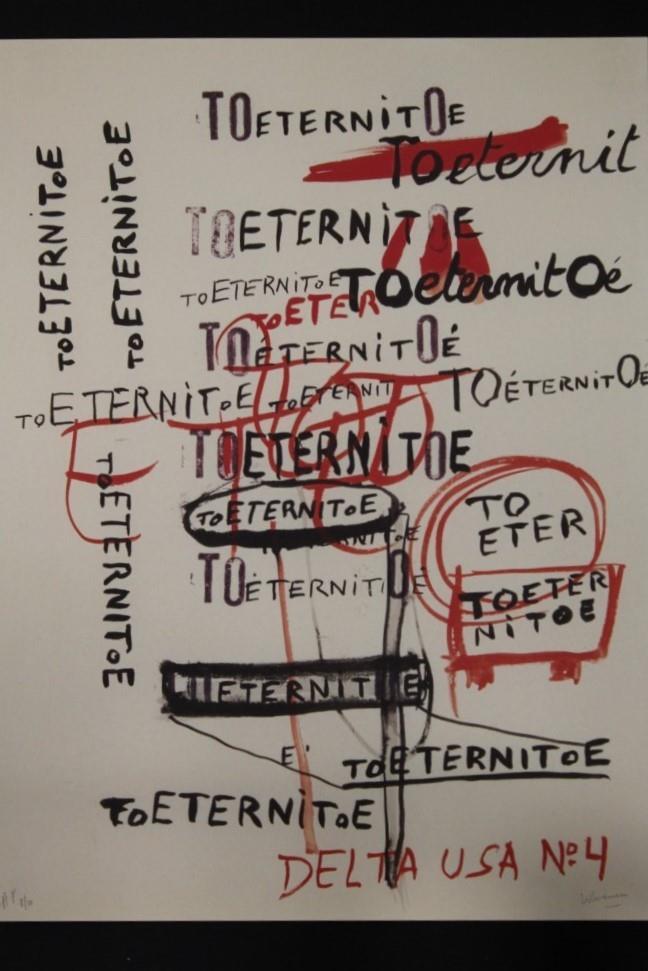 TOETERNITOE
Toeternit
TOETERNITOE
TOETERNITOE
TOeternitOé
TOETER
TOÉTERNITOÉ
TOETERNITOE
TOETERNIT
TOÉTERNITOÉ
TOETERNITOE
TOETERNITOE
TOETERNITOE
TOETERNITOE
TO
ETER
TOETERNITOE
TOETER
NITOE
TOETERNITOE
TOETERNITOE
E'
TOETERNITOE
TOETERNITOE
DELTA USA Nº4